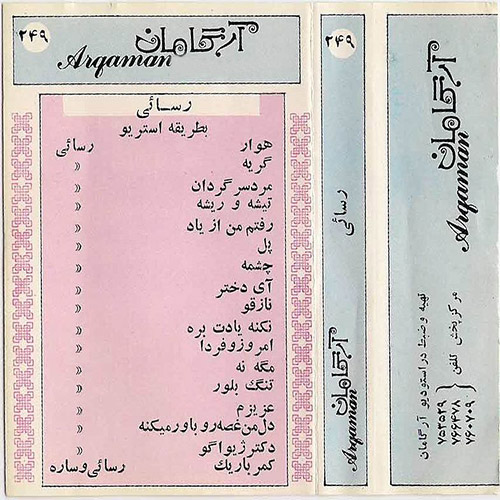 ۲۴۹
آرگامان
Arqaman
رسائی
بطریقه استریو
هوار رسائی
گریه »
مردسرگردان »
تیشه و ریشه »
رفتم من از یاد »
پل »
چشمه »
آی دختر »
نازقو »
نکنه یادت بره »
امروزوفردا »
مگه نه »
تنگ بلور »
عزیزم »
دل‌من‌غصه‌رو باورمیکنه »
دکترژیواگو »
کمرباریك رسائی وساره
۲۴۹
رسائی
آرگامان
Arqaman
آرگامان
Arqaman
تهیه وضبط دراستودیو آرگامان
مرکزپخش تلفن
۷۵۲۵۲۹
۷۶۶۴۷۸
۷۶۰۷۰۹